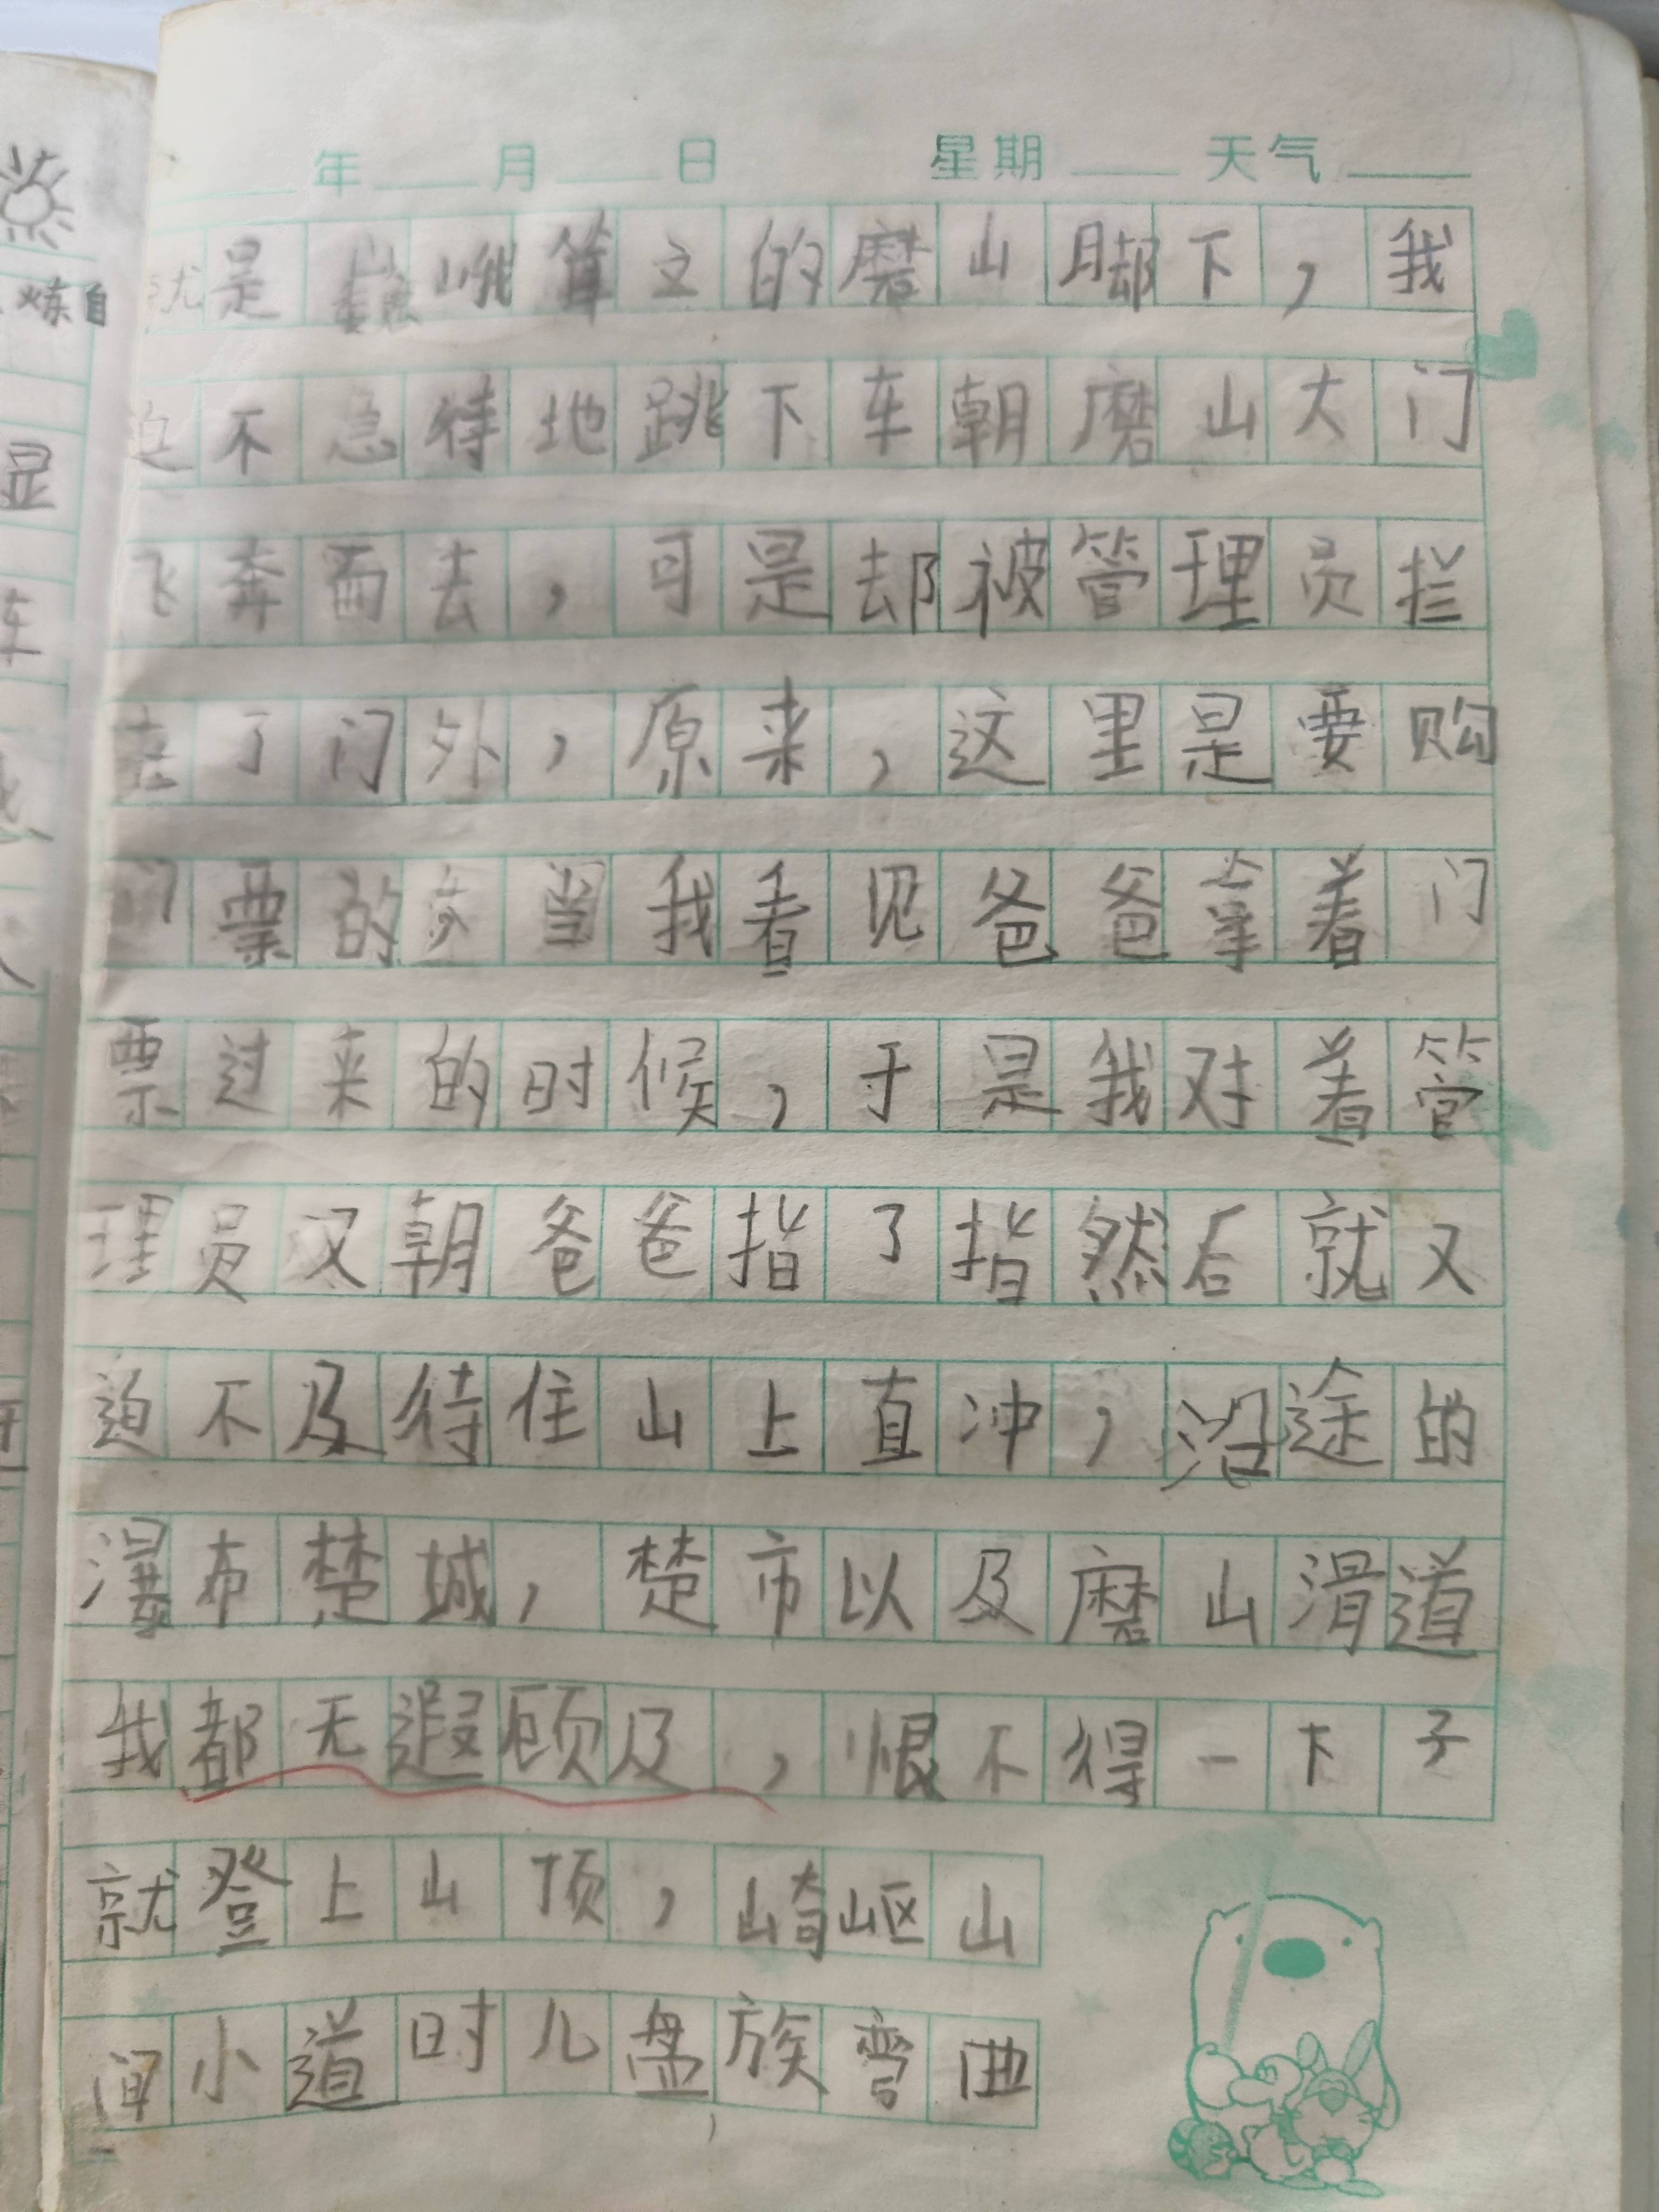 年 月 日 星期 天气
就是巍峨耸立的磨山脚下，我
迫不急待地跳下车朝磨山大门
飞奔而去，可是却被管理员拦
在了门外，原来，这里是要购
门票的，当我看见爸爸拿着门
票过来的时候，于是我对着管
理员又朝爸爸指了指然后就又
迫不及待住山上直冲，沿途的
瀑布楚城，楚市以及磨山滑道
我都无遐顾及，恨不得一下子
就登上山顶，崎岖山
间小道时儿盘族弯曲，
炼自
显
车